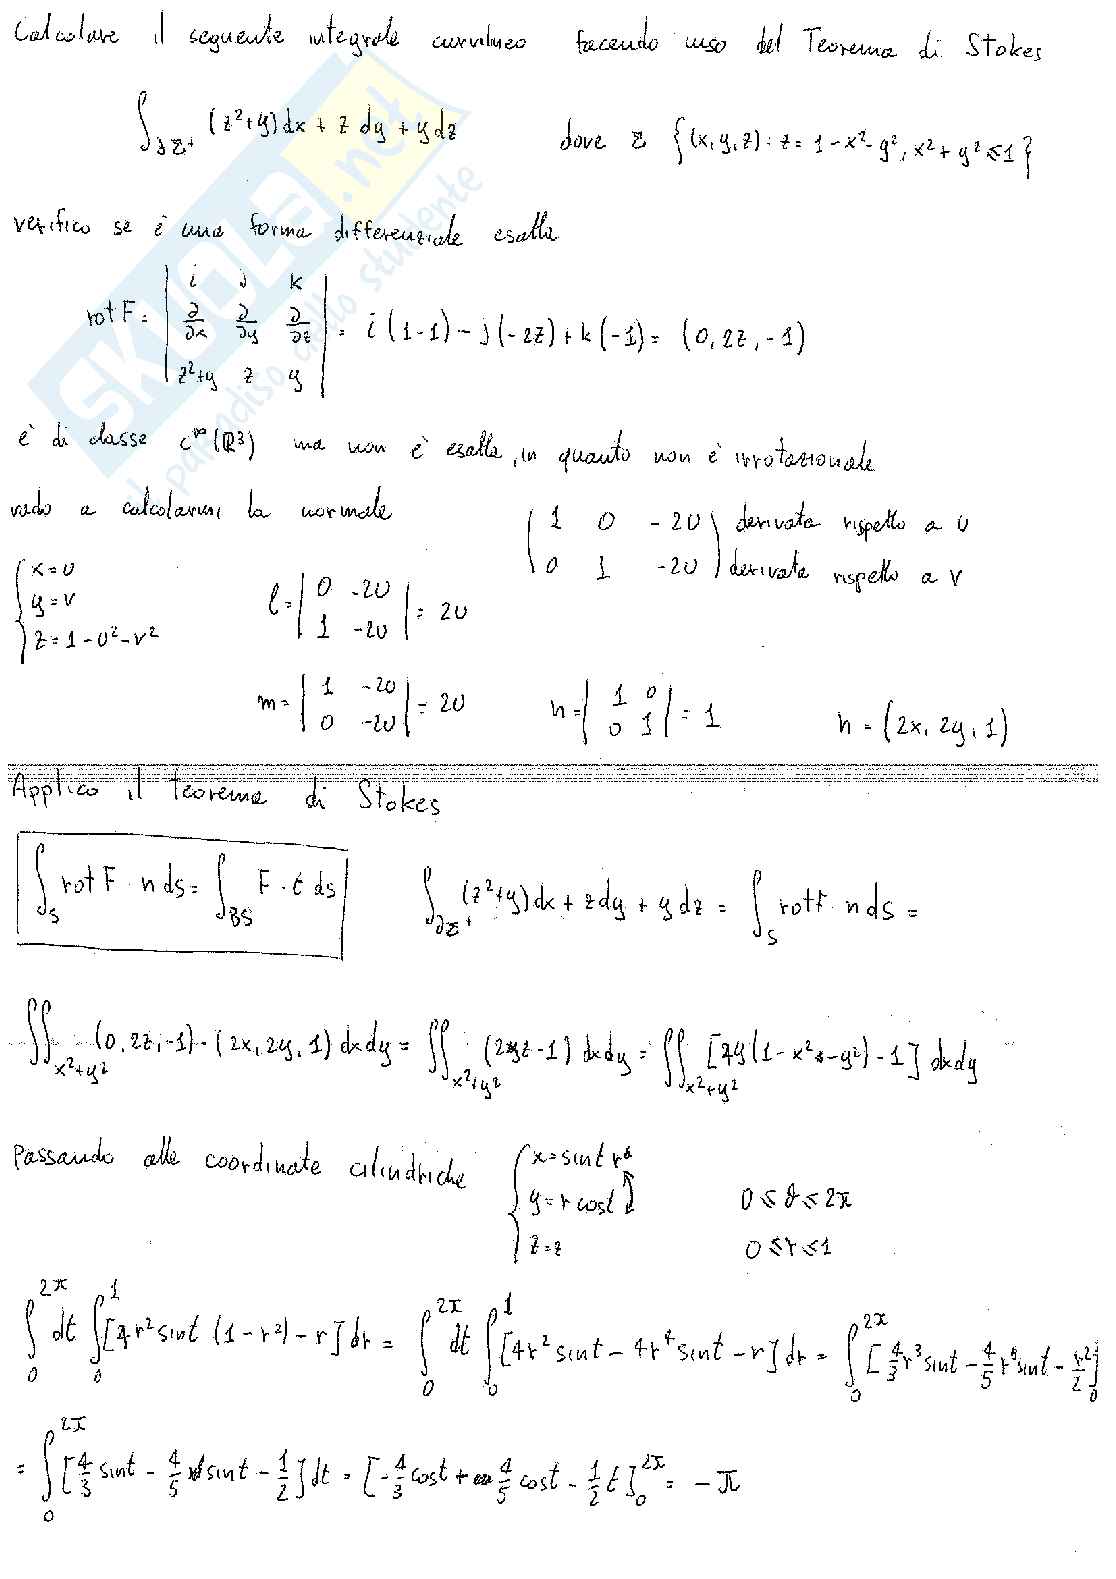 Calcolare il seguente integrale curvilineo facendo uso del Teorema di Stokes
∫_{∂Σ⁺} (z²+y)dx + z dy + y dz dove Σ {(x,y,z): z = 1-x²-y², x²+y² ≤ 1}
verifico se è una forma differenziale esatta
rot F = | i j k ; ∂/∂x ∂/∂y ∂/∂z ; z²+y z y | = i(1-1) - j(-2z) + k(-1) = (0, 2z, -1)
è di classe C^∞(ℝ³) ma non è esatta, in quanto non è irrotazionale
vado a calcolarmi la normale
( 1 0 -2U ) derivata rispetto a U
( 0 1 -2U ) derivata rispetto a V
{ x=U
y=V
z=1-U²-V²
l = | 0 -2U ; 1 -2U | = 2U
m = | 1 -2U ; 0 -2U | = 2U n = | 1 0 ; 0 1 | = 1 n = (2x, 2y, 1)
Applico il teorema di Stokes
∫_S rot F · n ds = ∫_{BS} F · t ds
∫_{∂Σ⁺} (z²+y)dx + zdy + y dz = ∫_S rot F · n ds =
∬_{x²+y²} (0, 2z, -1) · (2x, 2y, 1) dxdy = ∬_{x²+y²} (2yz-1) dxdy = ∬_{x²+y²} [4y(1-x²-y²) - 1] dxdy
Passando alle coordinate cilindriche { x = sint r
y = r cost 0 ≤ θ ≤ 2π
z = z 0 ≤ r ≤ 1
∫_0^{2π} dt ∫_0^1 [4r² sint (1-r²) - r] dr = ∫_0^{2π} dt ∫_0^1 [4r² sint - 4r⁴ sint - r] dr = ∫_0^{2π} [4/3 r³ sint - 4/5 r⁴ sint - r²/2]_0^1
= ∫_0^{2π} [4/3 sint - 4/5 sint - 1/2] dt = [-4/3 cost + 4/5 cost - 1/2 t]_0^{2π} = -π
SKUOLA.net
il paradiso dello studente